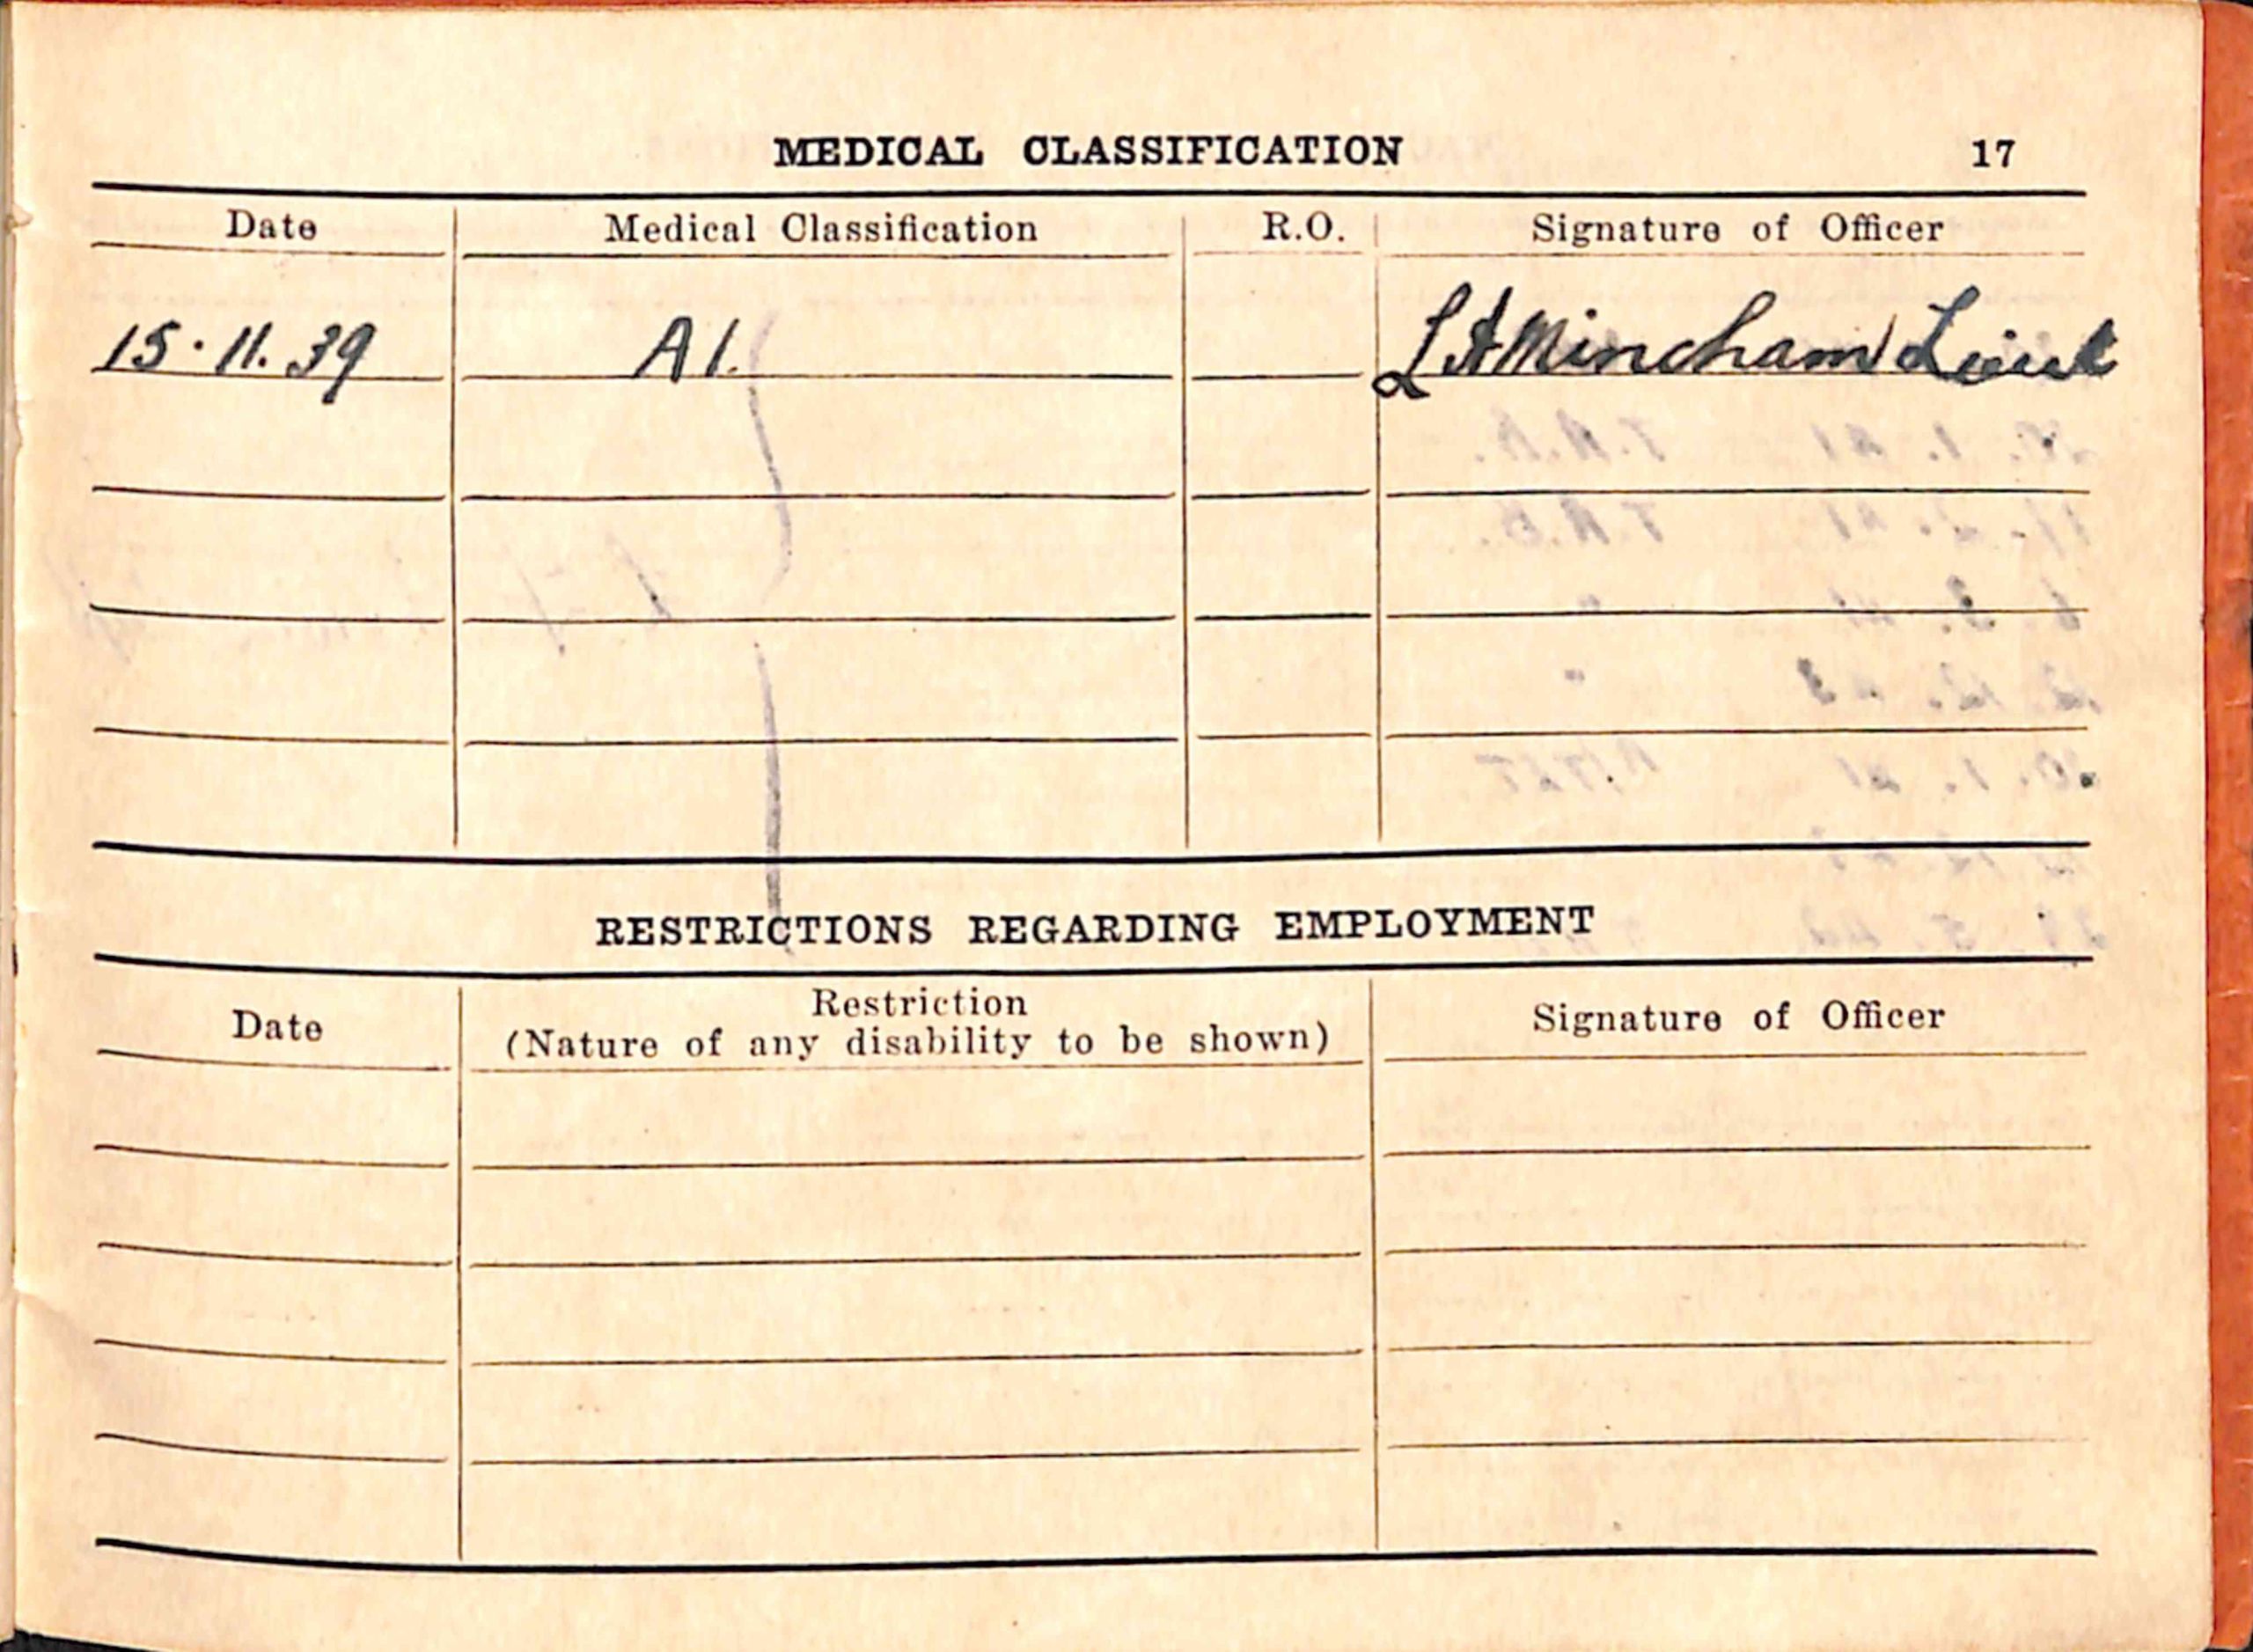 MEDICAL CLASSIFICATION 17
Date Medical Classification R.O. Signature of Officer
15.11.39 A1. L A Mincham Lieut
RESTRICTIONS REGARDING EMPLOYMENT
Date Restriction Signature of Officer
(Nature of any disability to be shown)